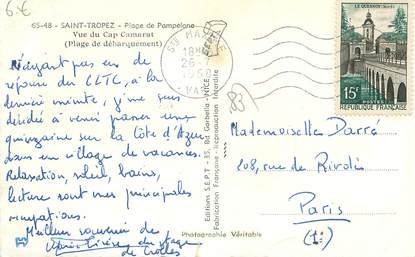 6€
65-48 - SAINT-TROPEZ - Plage de Pampelone
Vue du Cap Camarat
(Plage de débarquement)
N'ayant pas eu de
réponse du CLTC, à la
dernière minute, je me suis
décidée à venir passer une
quinzaine sur la Côte d'Azur
dans un village de vacances.
Relaxation, soleil, bains,
lecture sont mes principales
occupations.
Meilleur souvenir de
du stage
de
Photographie Véritable
Editions S.E.P.T - 35, Bd Gorbella - NICE
Fabrication Française - Reproduction Interdite
18H
26-7
VAR
83
LE QUESNOY (Nord)
15F
POSTES
REPUBLIQUE FRANÇAISE
Mademoiselle Darré
208, rue de Rivoli
Paris
(1e)